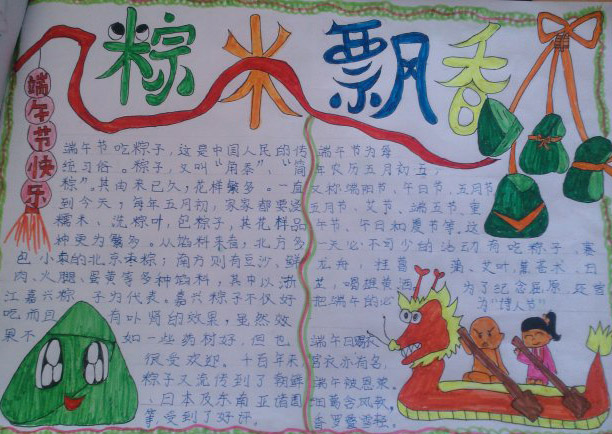 粽米飘香
端午节快乐
端午节吃粽子,这是中国人民的传
统习俗。粽子,又叫“角黍”、“筒
粽”。其由来已久,花样繁多。一直
到今天,每年五月初,家家都要浸
糯米、洗粽叶,包粽子,其花样品
种更为繁多。从馅料来看,北方多
包小枣的北京枣粽;南方则有豆沙、鲜
肉、火腿、蛋黄等多种馅料,其中以浙
江嘉兴粽子为代表。嘉兴粽子不仅好
吃而且有补肾的效果,虽然效
果不如一些药材好,但也
很受欢迎。千百年来,
粽子又流传到了朝鲜
、日本及东南亚诸国
等受到了好评。
端午节为每
年农历五月初五,
又称端阳节、午日节、五月节
五月节、艾节、端五节、重
午节、午日和夏节等,这
一天必不可少的活动有吃粽子,赛
龙舟,挂菖蒲、艾叶,薰苍术、白
芷,喝雄黄酒。为了纪念屈原,还有
把端午的为“诗人节”
端午日赐衣
宫衣亦有名,
端午被恩荣。
细葛含风软,
香罗叠雪轻。